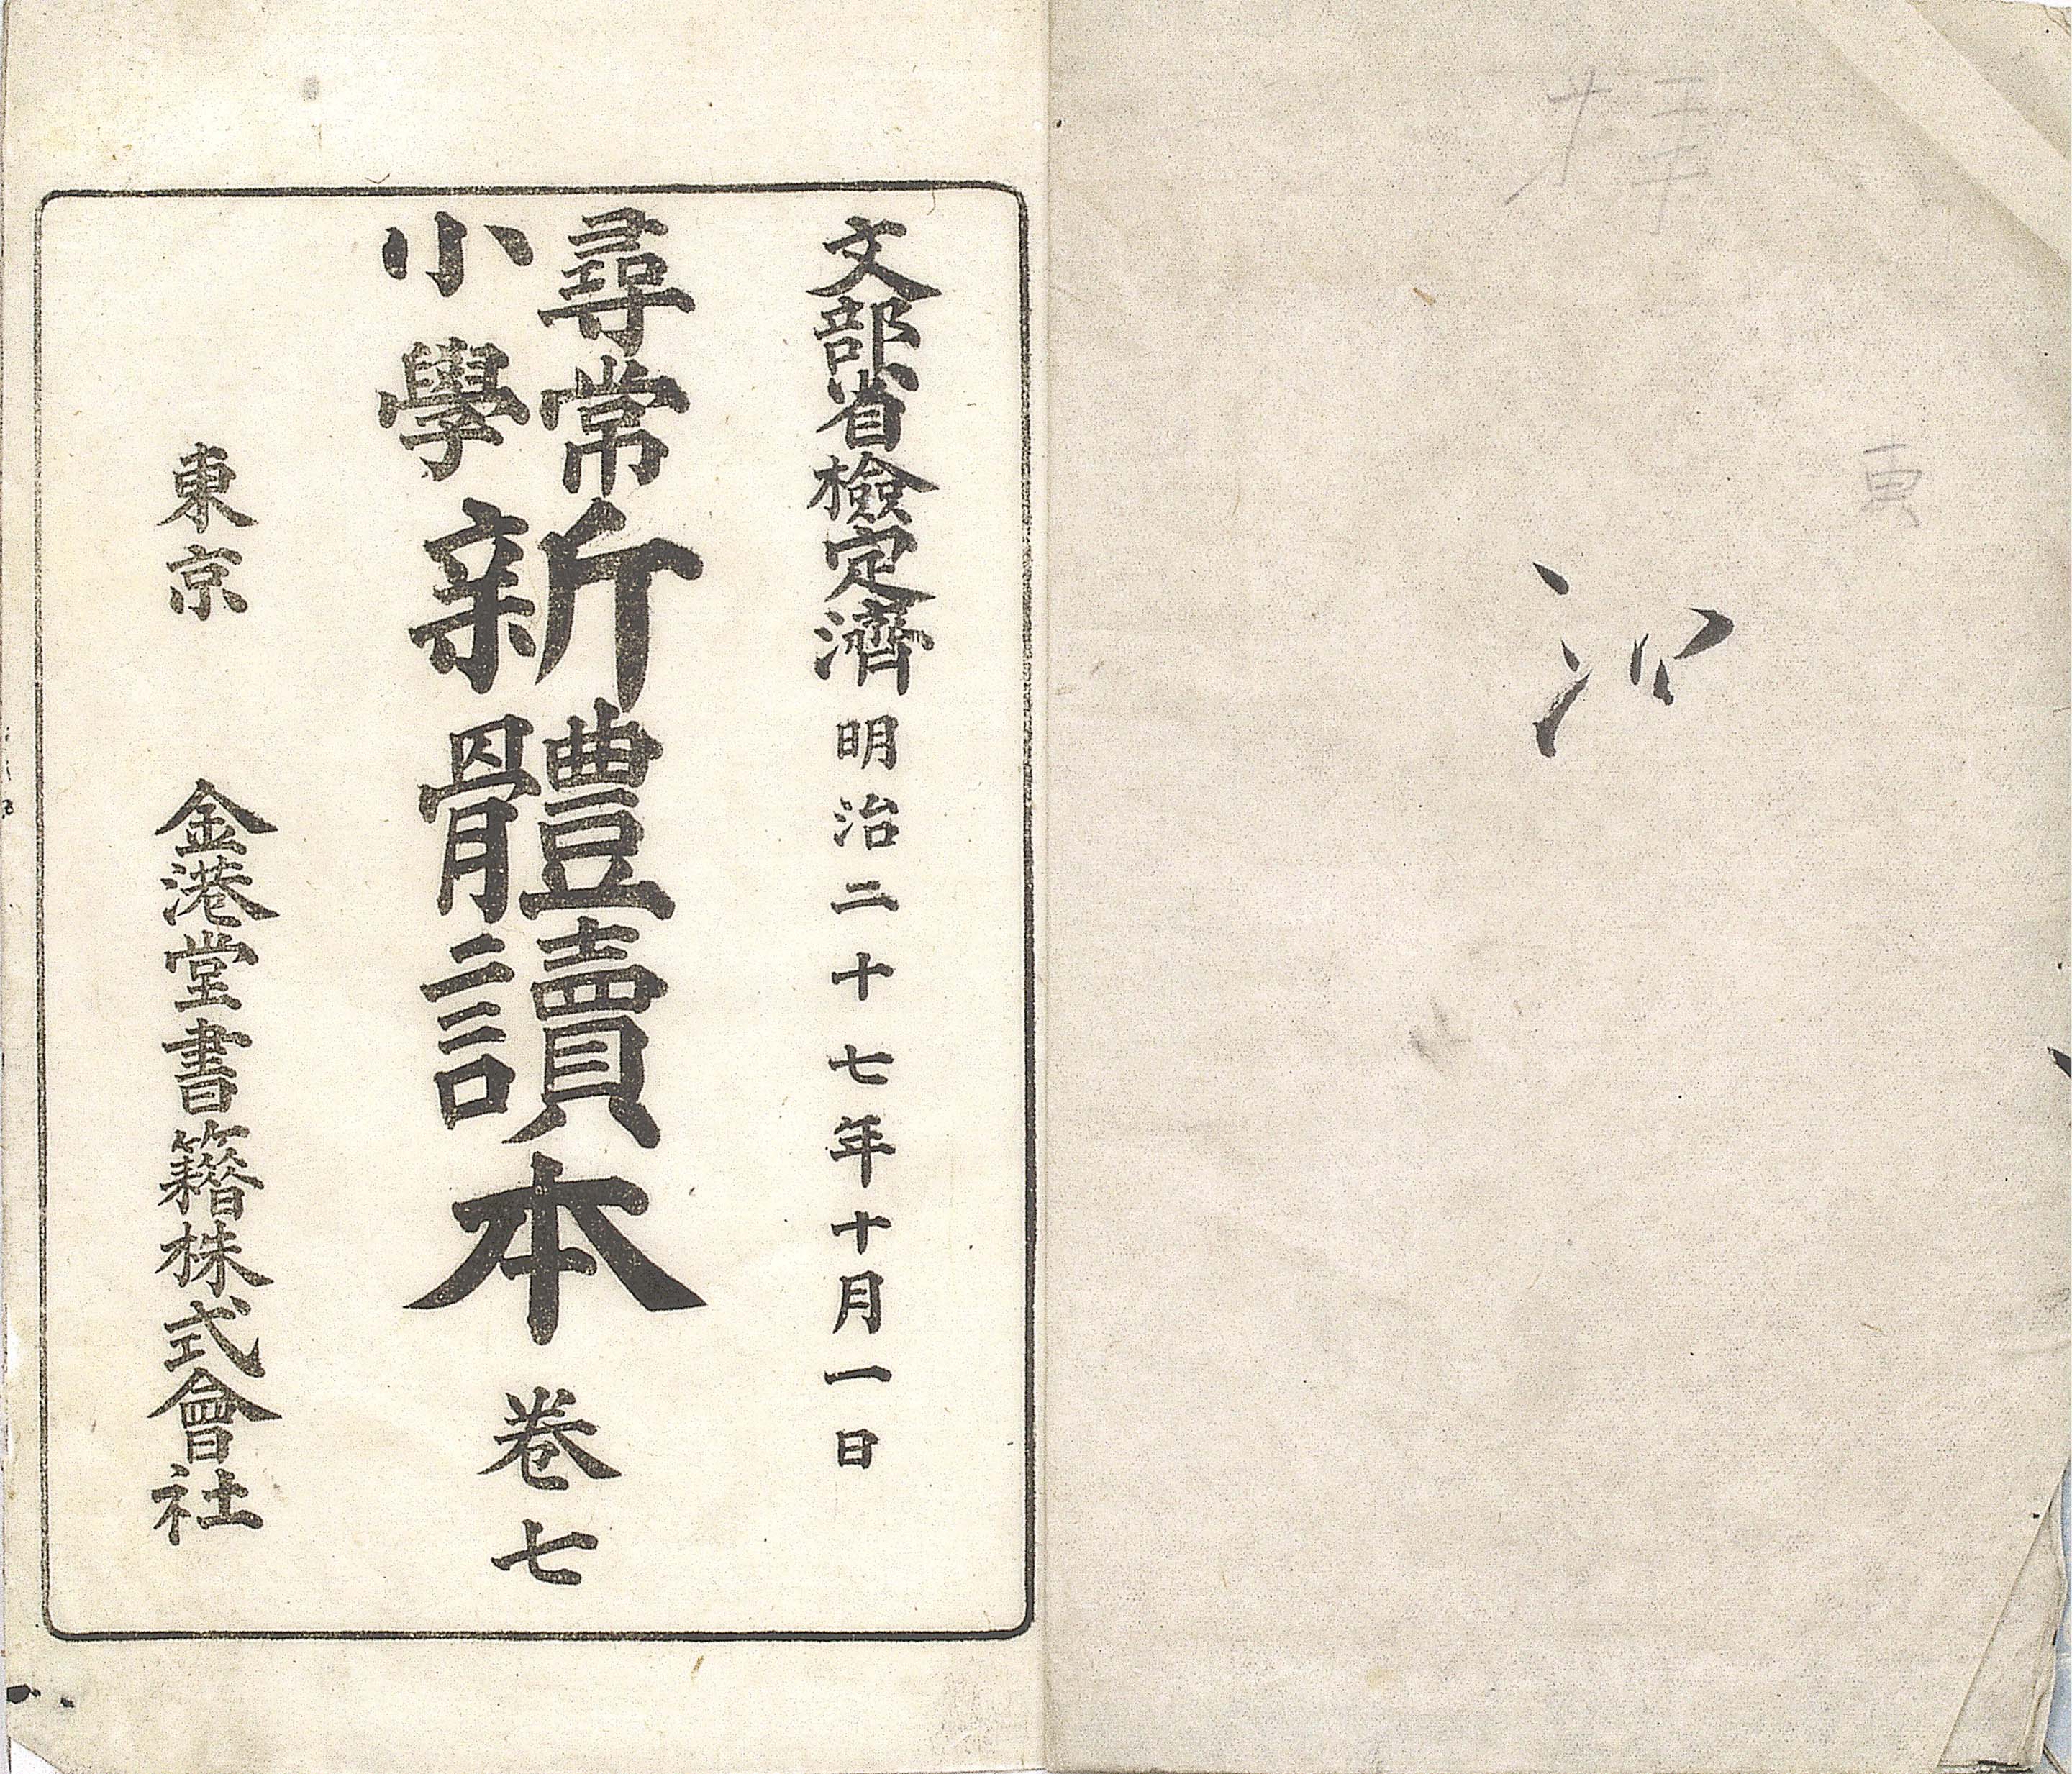 文部省檢定濟 明治二十七年十月一日
尋常
小學
新體讀本 卷七
東京 金港堂書籍株式會社